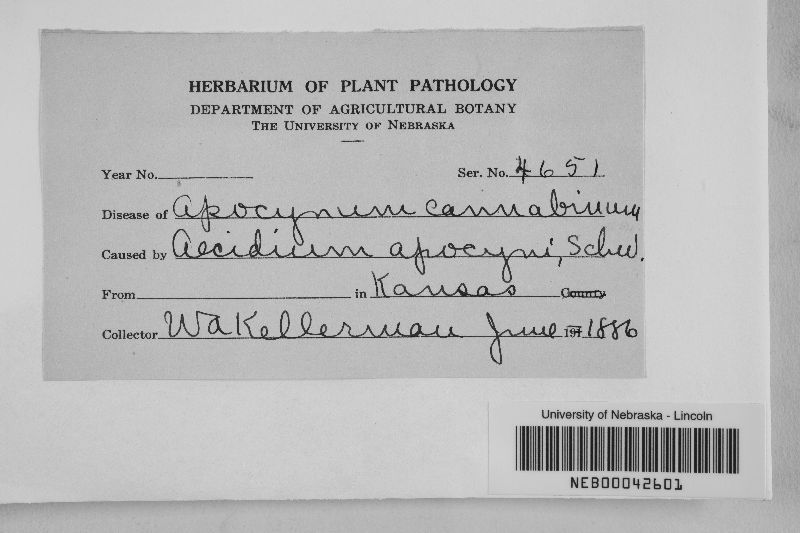 HERBARIUM OF PLANT PATHOLOGY
DEPARTMENT OF AGRICULTURAL BOTANY
THE UNIVERSITY OF NEBRASKA
Year No. Ser. No. 4651
Disease of Apocynum cannabinum
Caused by Aecidium apocyni, Schw.
From in Kansas County
Collector WA Kellerman June 191 1886
University of Nebraska - Lincoln
NEB00042601